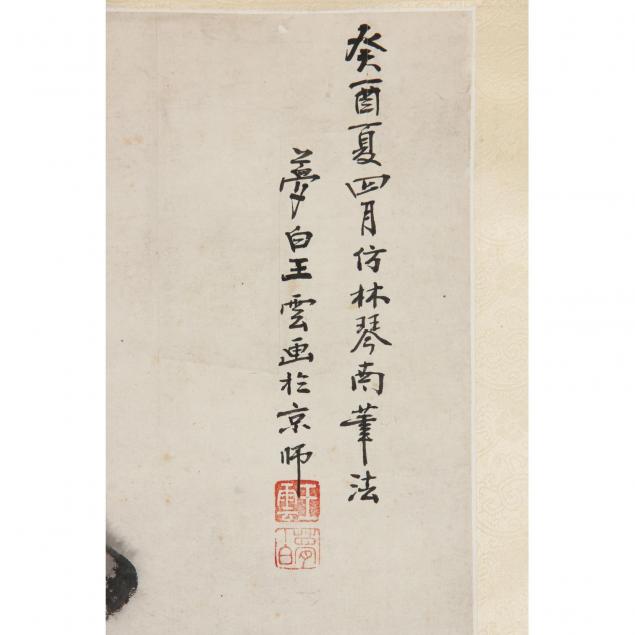 癸酉夏四月仿林琴南筆法
夢白王雲画於京師
王雲
夢白